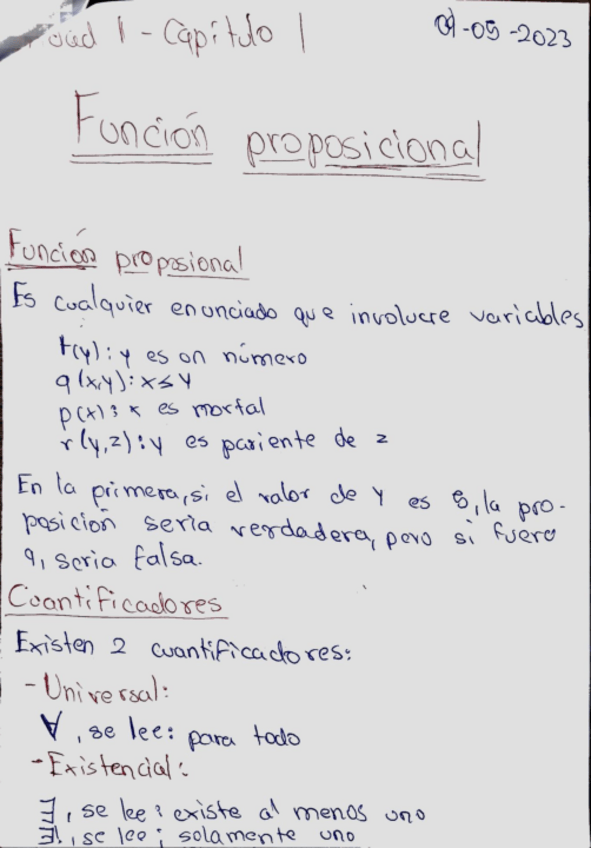 Capítulo 1
09-05-2023
Función proposicional
Función proposional
Es cualquier enunciado que involucre variables
t(y): y es un número
q(x,y): x ≤ y
p(x): x es mortal
r(y,z): y es pariente de z
En la primera, si el valor de y es 8, la pro-
posición seria verdadera, pero si fuera
a, seria falsa.
Cuantificadores
Existen 2 cuantificadores:
- Universal:
∀, se lee: para todo
- Existencial:
∃, se lee: existe al menos uno
∃!, se lee: solamente uno